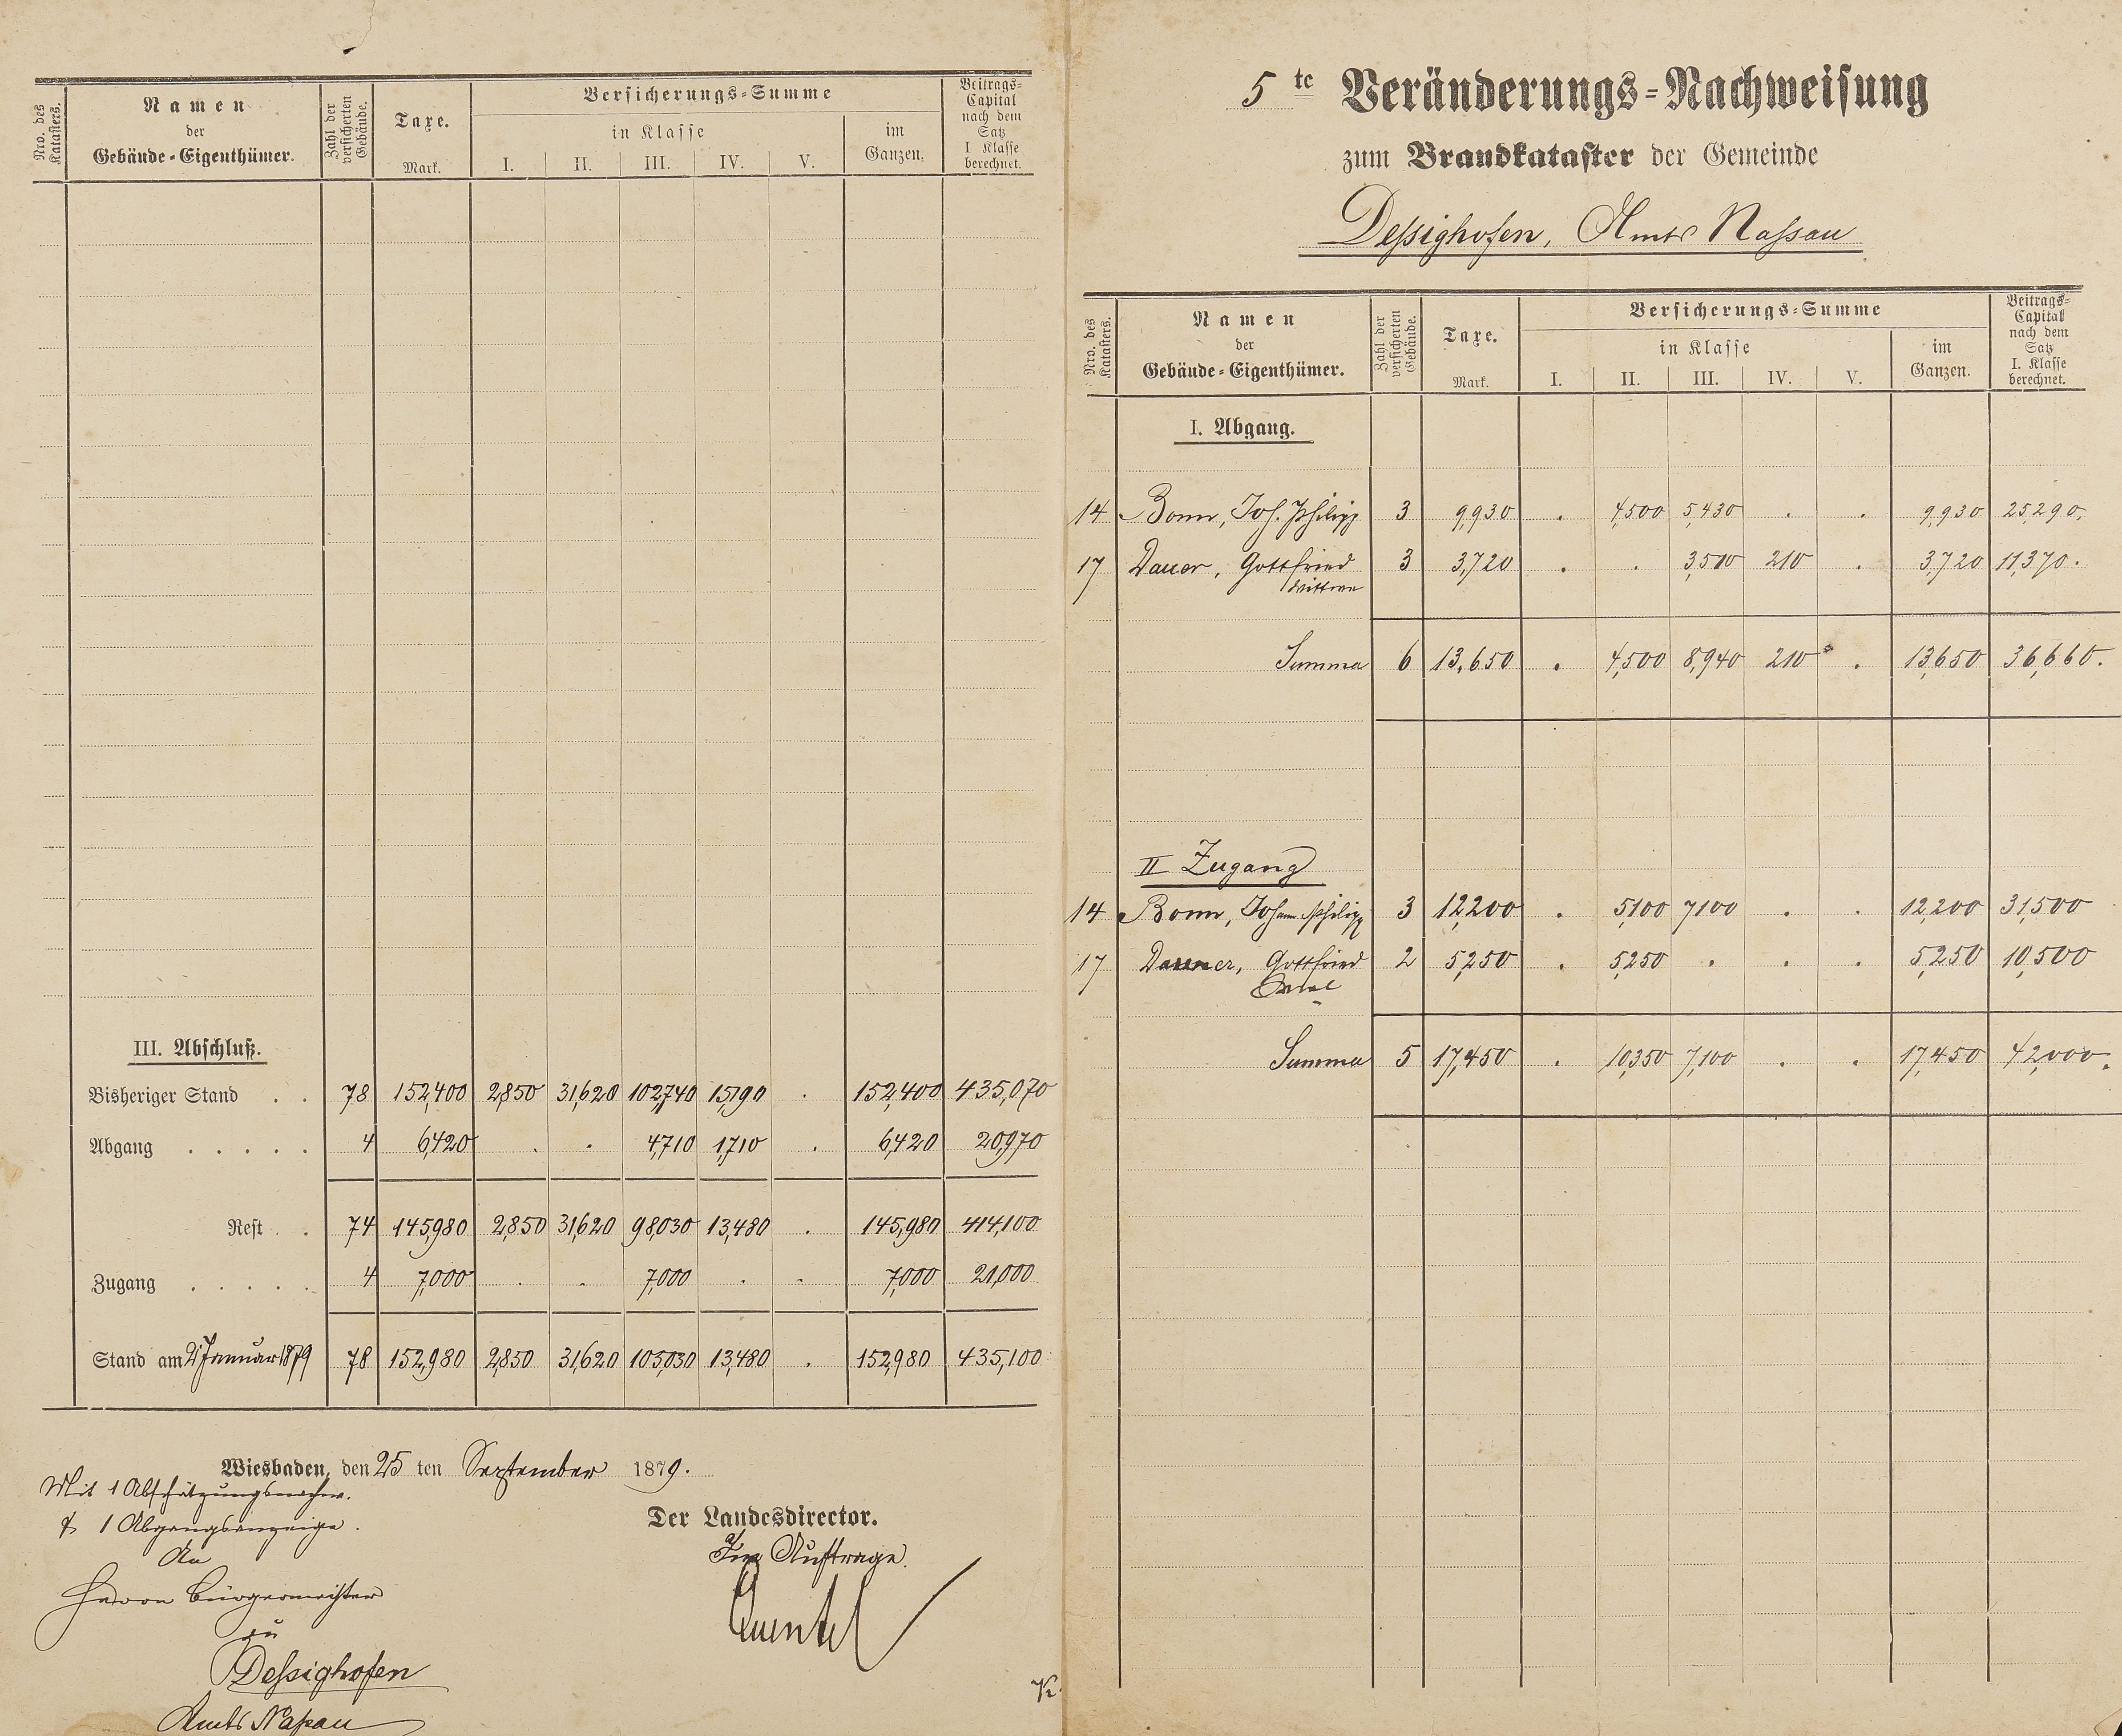 Nro. des Katasters.
Namen
der
Gebäude-Eigenthümer.
Zahl der versicherten Gebäude.
Taxe.
Mark.
Versicherungs-Summe
in Klasse
I. II. III. IV. V.
im
Ganzen.
Beitrags-
Capital
nach dem
Satz
I Klasse
berechnet.
III. Abschluß.
Bisheriger Stand . . 78 152,400 2,850 31,620 102,740 15,190 . 152,400 435,070
Abgang . . . . . 4 6,420 . . 4,710 1,710 . 6,420 20,970
Rest . . 74 145,980 2,850 31,620 98,030 13,480 . 145,980 414,100
Zugang . . . . . 4 7,000 . . 7,000 . . 7,000 21,000
Stand am 2 Januar 1879 78 152,980 2,850 31,620 105,030 13,480 . 152,980 435,100
Wiesbaden, den 25 ten September 1879.
Mit 1 Abschätzungsnachw.
& 1 Abgangsanzeige.
An
Herrn Bürgermeister
zu
Dessighofen
Amts Nassau
Der Landesdirector.
Im Auftrage.
5 te Veränderungs-Nachweisung
zum Brandkataster der Gemeinde
Dessighofen, Amts Nassau
Nro. des Katasters.
Namen
der
Gebäude-Eigenthümer.
Zahl der versicherten Gebäude.
Taxe.
Mark.
Versicherungs-Summe
in Klasse
I. II. III. IV. V.
im
Ganzen.
Beitrags-
Capital
nach dem
Satz
I. Klasse
berechnet.
I. Abgang.
14 Bonn, Joh. Philipp 3 9,930 . 4,500 5,430 . . 9,930 25,290.
17 Dauer, Gottfried 3 3,720 . . 3,510 210 . 3,720 11,370.
Wittwe
Summa 6 13,650 . 4,500 8,940 210 . 13,650 36,660.
II Zugang
14 Bonn, Johann Philipp 3 12,200 . 5,100 7,100 . . 12,200 31,500
17 Dauer, Gottfried 2 5,250 . 5,250 . . . 5,250 10,500
Summa 5 17,450 . 10,350 7,100 . . 17,450 42,000.